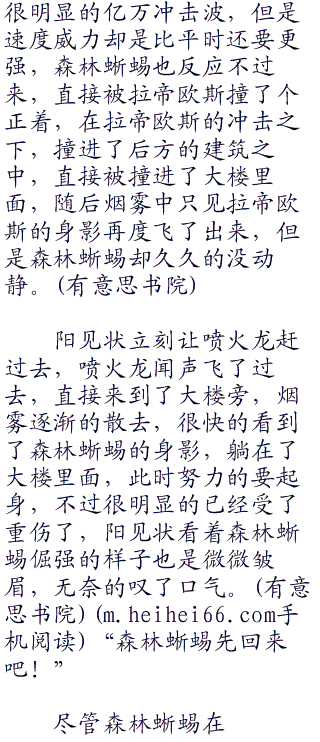 很明显的亿万冲击波，但是
速度威力却是比平时还要更
强，森林蜥蜴也反应不过
来，直接被拉帝欧斯撞了个
正着，在拉帝欧斯的冲击之
下，撞进了后方的建筑之
中，直接被撞进了大楼里
面，随后烟雾中只见拉帝欧
斯的身影再度飞了出来，但
是森林蜥蜴却久久的没动
静。(有意思书院)
阳见状立刻让喷火龙赶
过去，喷火龙闻声飞了过
去，直接来到了大楼旁，烟
雾逐渐的散去，很快的看到
了森林蜥蜴的身影，躺在了
大楼里面，此时努力的要起
身，不过很明显的已经受了
重伤了，阳见状看着森林蜥
蜴倔强的样子也是微微皱
眉，无奈的叹了口气。(有意
思书院)(m.heihei66.com手
机阅读)“森林蜥蜴先回来
吧！”
尽管森林蜥蜴在